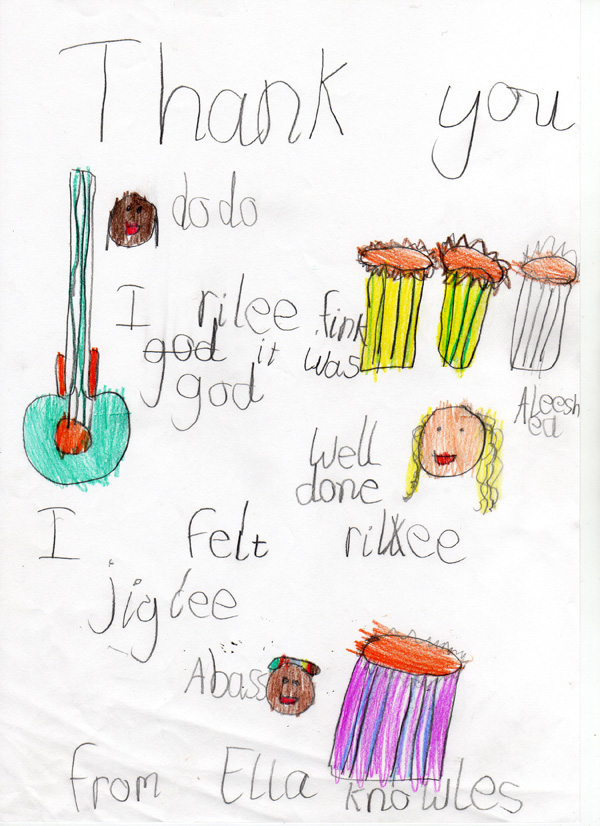 Thank you
dodo
I rilee fink
god it was
god
Aleesh
ea
Well
done
I felt rilkee
jiglee
Abass
from Ella knowles